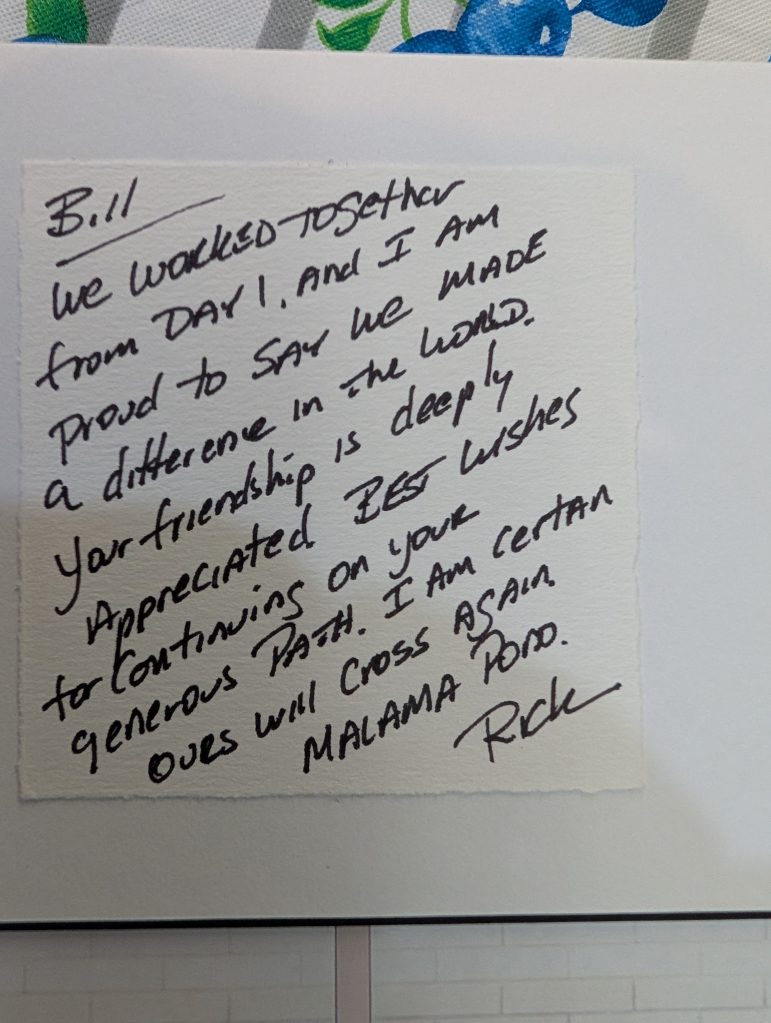 Bill
We WORKED TOGether
from DAY 1. And I AM
Proud to SAY We MADE
a difference in the WORLD.
Your friendship is deeply
AppreciAted. BEST Wishes
for Continuing on your
generous PATH. I AM certAn
OURS will Cross AGAin.
MALAMA PONO.
Rick